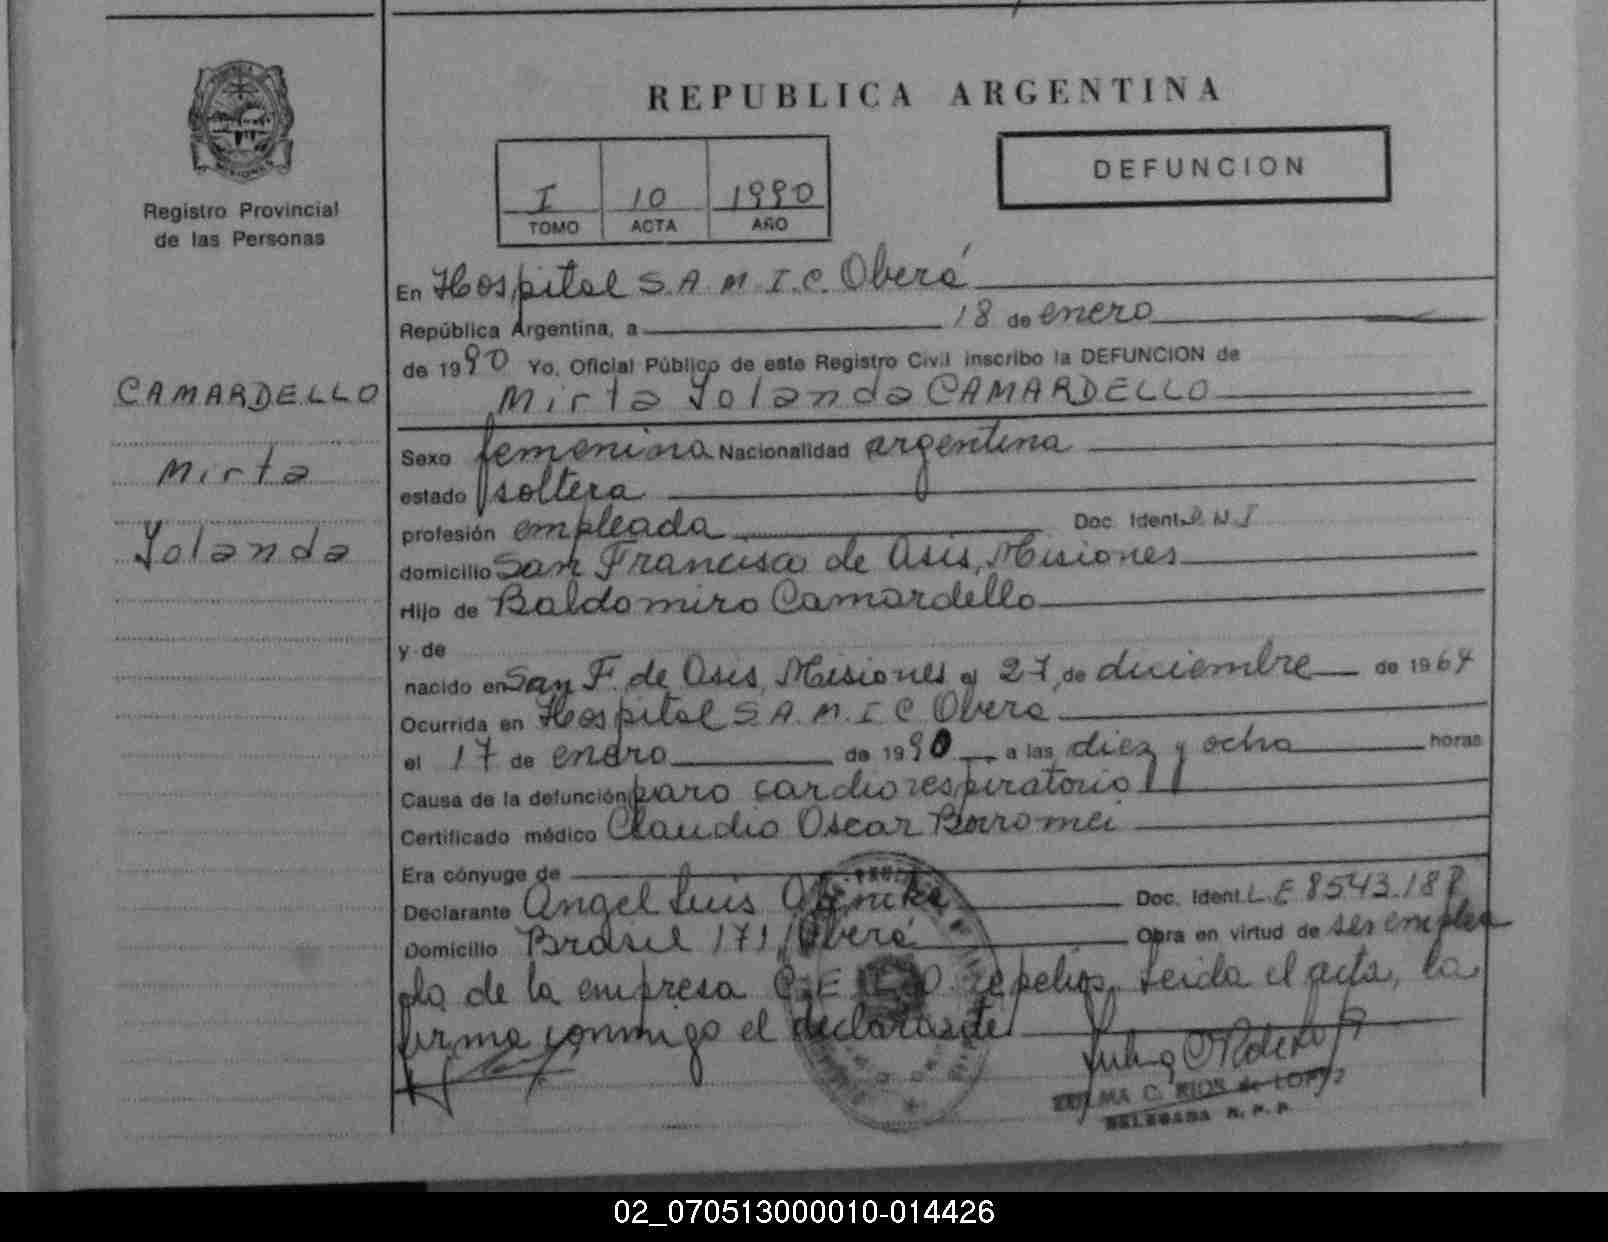 REPUBLICA ARGENTINA
DEFUNCION
I 10 1990
TOMO ACTA AÑO
Registro Provincial
de las Personas
CAMARDELLO
Mirta
Yolanda
En Hospital S.A.M.I.C. Oberá
República Argentina, a 18 de enero
de 1990 Yo, Oficial Público de este Registro Civil inscribo la DEFUNCION de
Mirta Yolanda CAMARDELLO
Sexo femenino Nacionalidad argentina
estado soltera
profesión empleada Doc. Ident. D.N.I
domicilio San Francisco de Asis, Misiones
Hijo de Baldomiro Camardello
y de
nacido en San F. de Asis, Misiones el 27 de diciembre de 1964
Ocurrida en Hospital S.A.M.I.C Obera
el 17 de enero de 1990 a las diez y ocho horas
Causa de la defunción paro cardiorespiratorio
Certificado médico Claudio Oscar Borromei
Era cónyuge de
Declarante Angel Luis
Doc. Ident. L.E 8543.187
Domicilio Brasil 171, Oberá Obra en virtud de ser emplea
do de la empresa sepelios. Leida el acta, la
firma conmigo el declarante
ZULMA C. RIOS de LOPEZ
DELEGADA R. P. P.
02_070513000010-014426